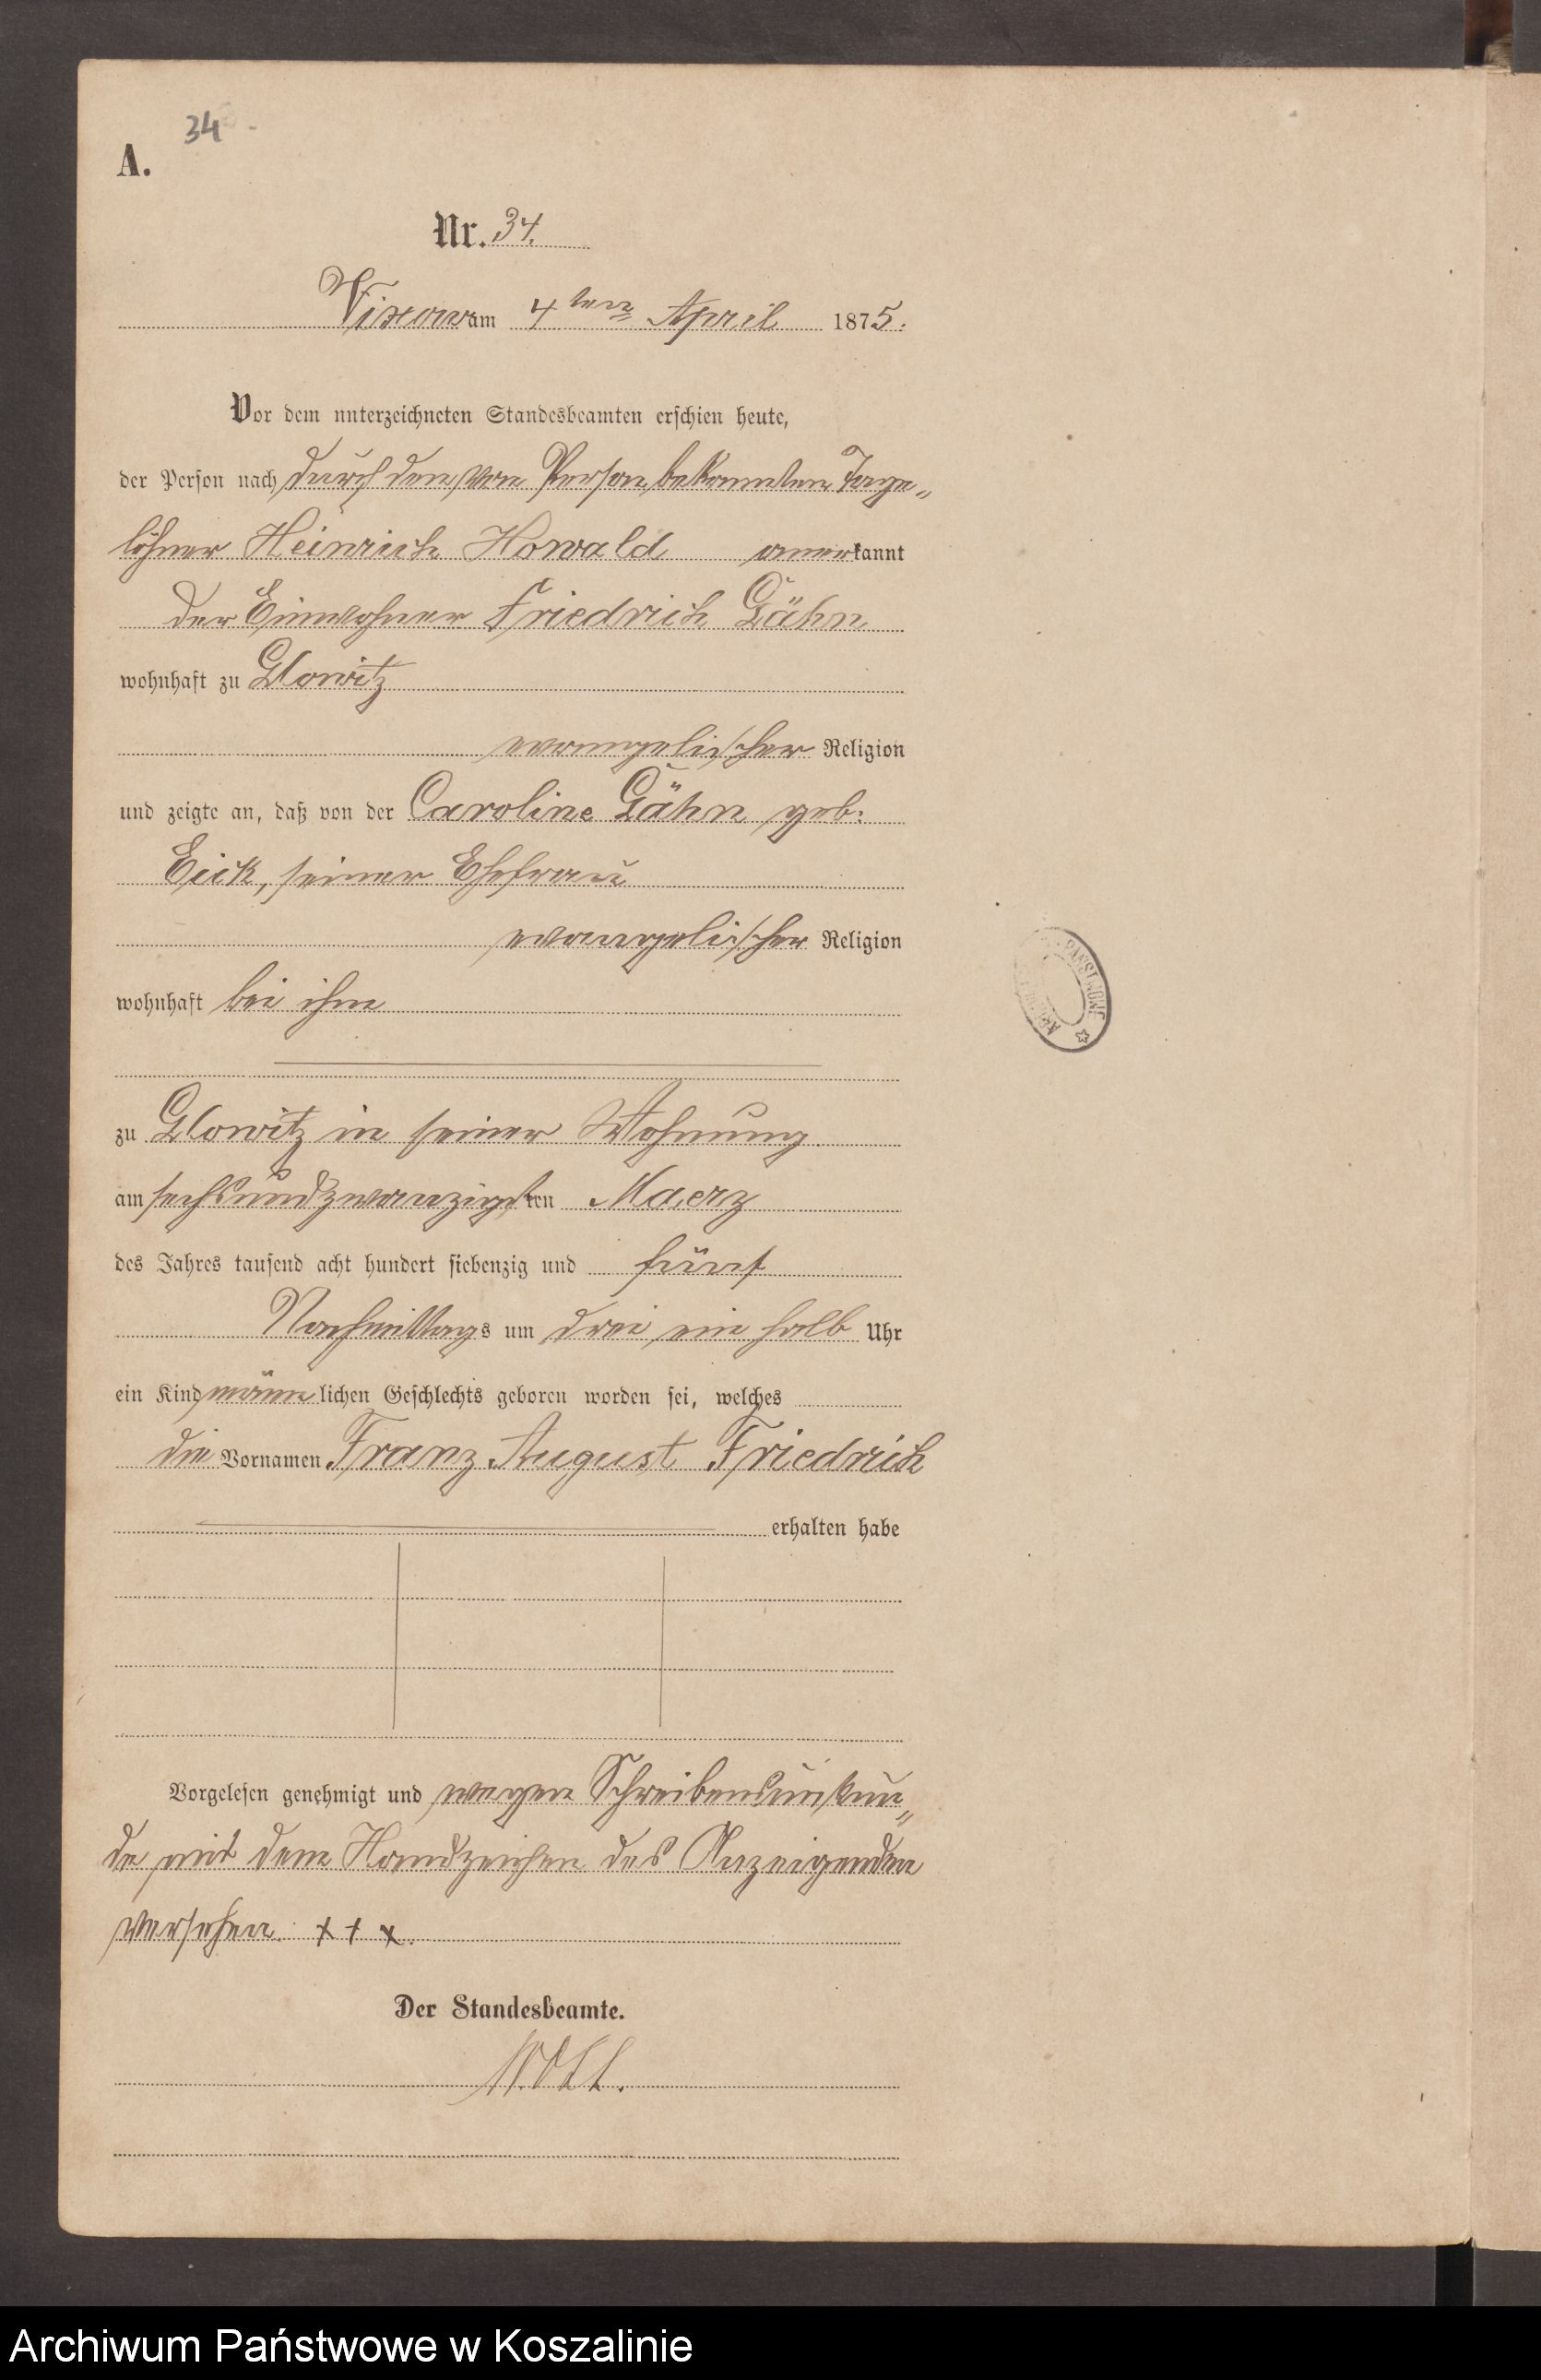 34
A.
Nr. 34.
Vixow am 4ten April 1875.
Vor dem unterzeichneten Standesbeamten erschien heute,
der Person nach durch den von Person bekannten Tage„
löhner Heinrich Howald anerkannt
der Einwohner Friedrich Gähn
wohnhaft zu Glowitz
evangelischer Religion
und zeigte an, daß von der Caroline Gähn geb.
Eick, seiner Ehefrau
evangelischer Religion
wohnhaft bei ihm
zu Glowitz in seiner Wohnung
am sechsundzwanzigsten Maerz
des Jahres tausend acht hundert siebenzig und fünf
Nachmittags um drei ein halb Uhr
ein Kind männlichen Geschlechts geboren worden sei, welches
die Vornamen Franz August Friedrich
erhalten habe
Vorgelesen genehmigt und wegen Schreibensunkun„
de mit dem Handzeichen des Anzeigenden
versehen. + + +.
Der Standesbeamte.
PAŃSTWOWE
Archiwum Państwowe w Koszalinie